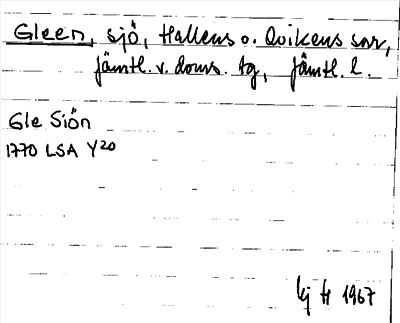 Gleen, sjö, Hallens o. Qvikens snr,
Jämtl. v. doms. tg, Jämtl. l.
Gle Siön
1770 LSA Y20
1967